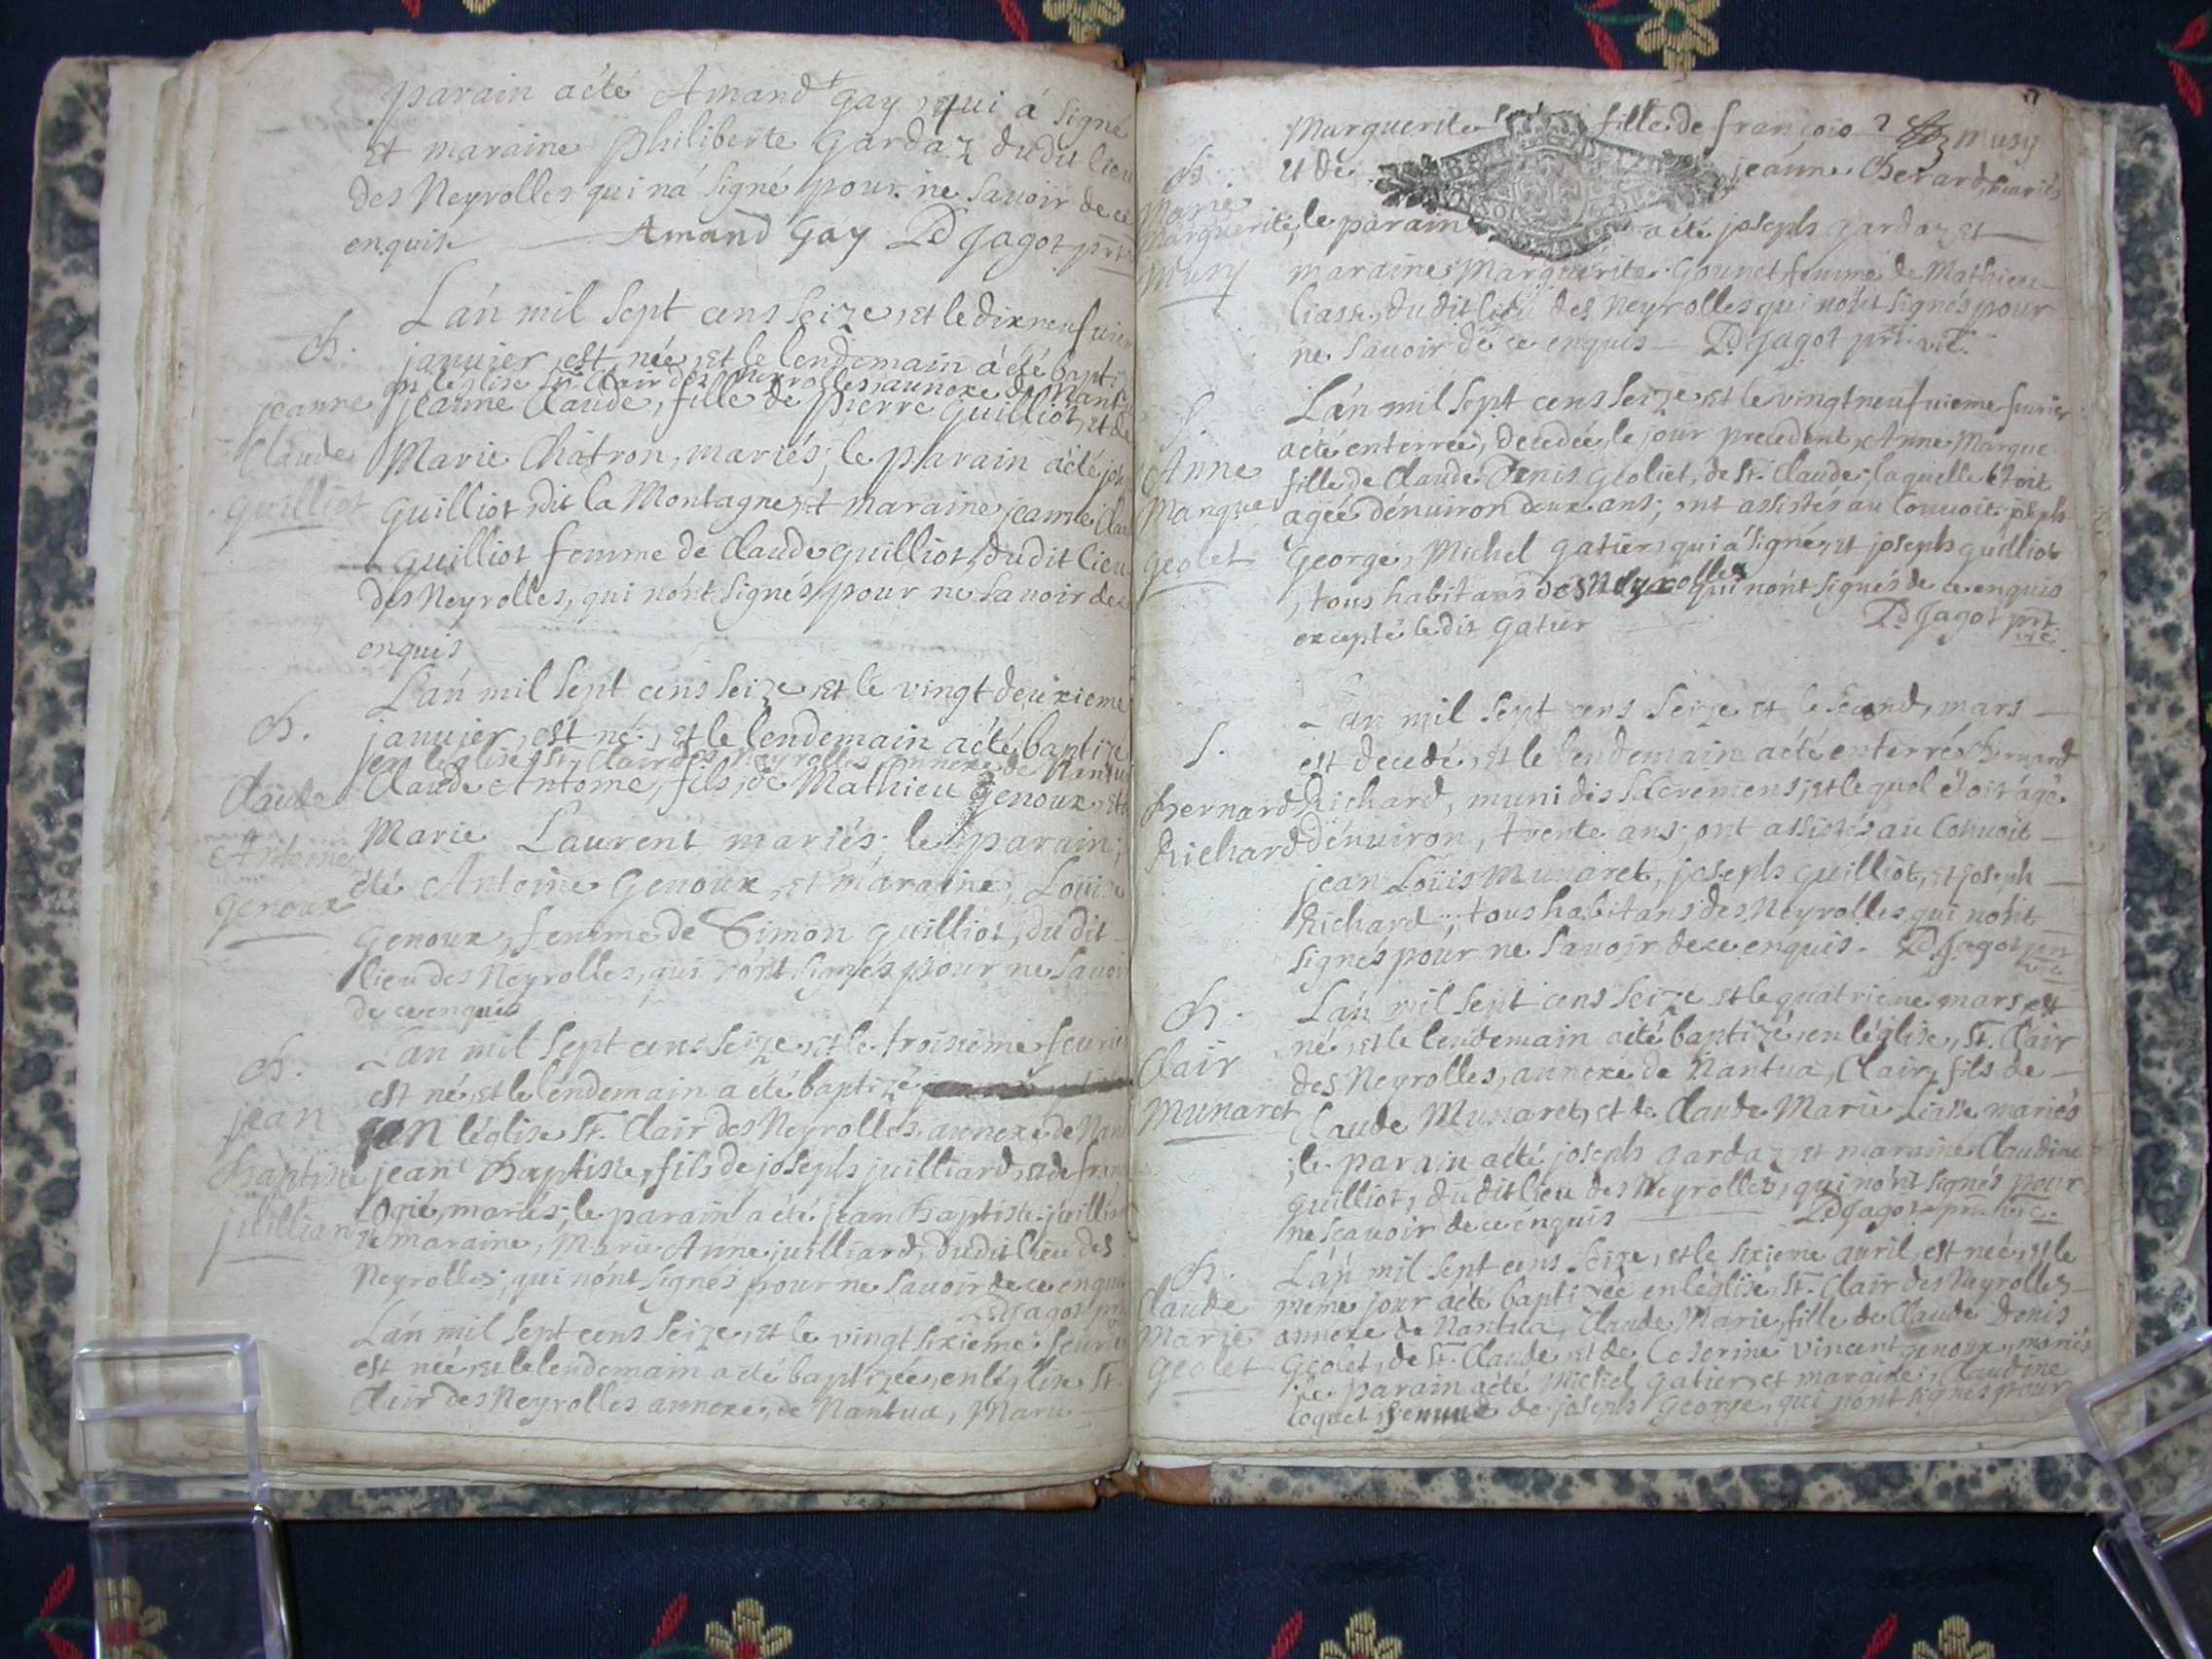 parain a été Amand Gay, qui á signé
et maraine philiberte gardaz dudit lieu
des Neyrolles qui ná signé pour ne savoir de ce
enquise Amand Gay Jagot
Lán mil sept cens seize, et le dix neufuieme
B.
januier, est née, et le lendemain á été bapti
en léglise St. Clair des neyrolles, annexe de Nant
jeanne
jeanne Claude, fille de pierre guilliot, et de
Claude
Marie Chatron, mariés; le parain á été jos
guilliot
guilliot, dit la Montagne, et maraine jeanne Clau
guilliot femme de Claude guilliot, dudit lieu
des Neyrolles, qui nónt signés pour ne savoir de ce
enquis
Lán mil sept cens seize, et le vingt deuxieme
B.
januier, est né, et le lendemain a été baptizé
en léglise St. Clair des Neyrolles annexe de Nantu
Claude
Claude Antoine, fils, de Mathieu genoux, et
Antoine
Marie Laurent mariés; le parain;
genoux
été Antoine Genoux, et maraine, Loüise
genoux, femme de Simon guilliot, du dit
lieu des Neyrolles, qui nónt signés pour ne savoir
de ce enquis
Lan mil sept cens seize, et le troisieme feurier
B.
est né, et le lendemain a été baptizé
jean
en léglise St. Clair des Neyrolles annexe de Nan
Baptiste
jean Baptiste, fils de joseph juilliard, et de fran
juilliard
Ogié, mariés; le parain a été jean Baptiste juillia
et maraine, Marie Anne juilliard, dudit lieu des
Neyrolles; qui nónt signés pour ne savoir de ce enquis
Jagot
Lán mil sept cens seize, et le vingt sixieme feurier
est née, et le lendemain a été baptizée, en léglise St.
Clair des Neyrolles annexe, de Nantua, Marie
Marguerite fille de françois Musy
B.
et de jeanne Berard, mariés
Marie
Marguerite
; le parain a été joseph gardaz et
Musy
maraine Marguerite Gounet femme de Mathieu
liasse, du dit lieu des Neyrolles qui nónt signés pour
ne savoir de ce enquis Jagot prt. vic.
Lán mil sept cens seize, et le vingt neufuieme feurier
S.
a été enterrée, decedée, le jour precedent, Anne Marque
Anne
fille de Claude Denis Geoliet, de St. Claude; laquelle étoit
Marque
agée dénuiron deux ans; ont assistés au Conuoit joseph
geolet
George, Michel gatier, qui á signé, et joseph guilliot
, tous habitans des Neyrolles qui nónt signés de ce enquis
excepté le dit gatier
Jagot prt.
vic.
Lan mil sept cens seize et le second, mars
S.
est decedé, et le lendemain a été enterré Bernard
Bernard
Richard, muni des sacremens; et lequel étoit ágé
Richard
dénuiron, trente ans; ont assistés au Conuoit
jean Loüis Munaret, joseph guilliot, et joseph
Richard, tous habitans des Neyrolles qui nónt
signés pour ne savoir de ce enquis. Jagot
Lán mil sept cens seize et le quatrieme mars est
B.
né, et le lendemain a été baptizé, en léglise, St. Clair
Clair
des Neyrolles, annexe de Nantua, Clair, fils de
Munaret
Claude Munaret, et de Claude Marie Liasse mariés
; le parain a été joseph gardaz et maraine Claudine
guilliot, du dit lieu des Neyrolles, qui nónt signés pour
ne scauoir de ce enquis Jagot prt. vic.
Lán mil sept cens seize, et le sixieme auril, est née, et le
B.
meme jour a été baptizée en léglise, St. Clair des Neyrolles
Claude
annexe de Nantua, Claude Marie, fille de Claude Denis
Marie
geolet
Geolet, de St. Claude, et de vincent genoux, mariés
; le parain a été Michel gatier, et maraine, Claudine
Coquet, femme de joseph George, qui nónt signés pour